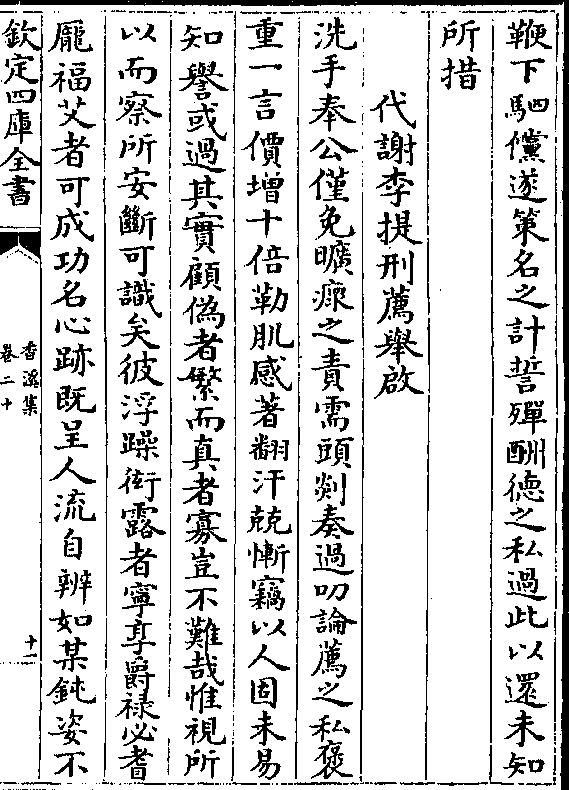 鞭下駟儻遂策名之計誓殫酬德之私過此以還未知
所措
代謝李提刑薦舉啟
洗手奉公僅免曠瘝之責需頭剡奏過叨論薦之私褒
重一言價增十倍勒肌感著翻汗兢慚竊以人固未易
知譽或過其實顧偽者繁而真者寡豈不難哉惟視所
以而察所安斷可識矣彼浮躁衒露者寧享爵祿必耆
龎福艾者可成功名心跡既呈人流自辨如某鈍姿不
欽定四庫全書
香溪集
卷二十
十一